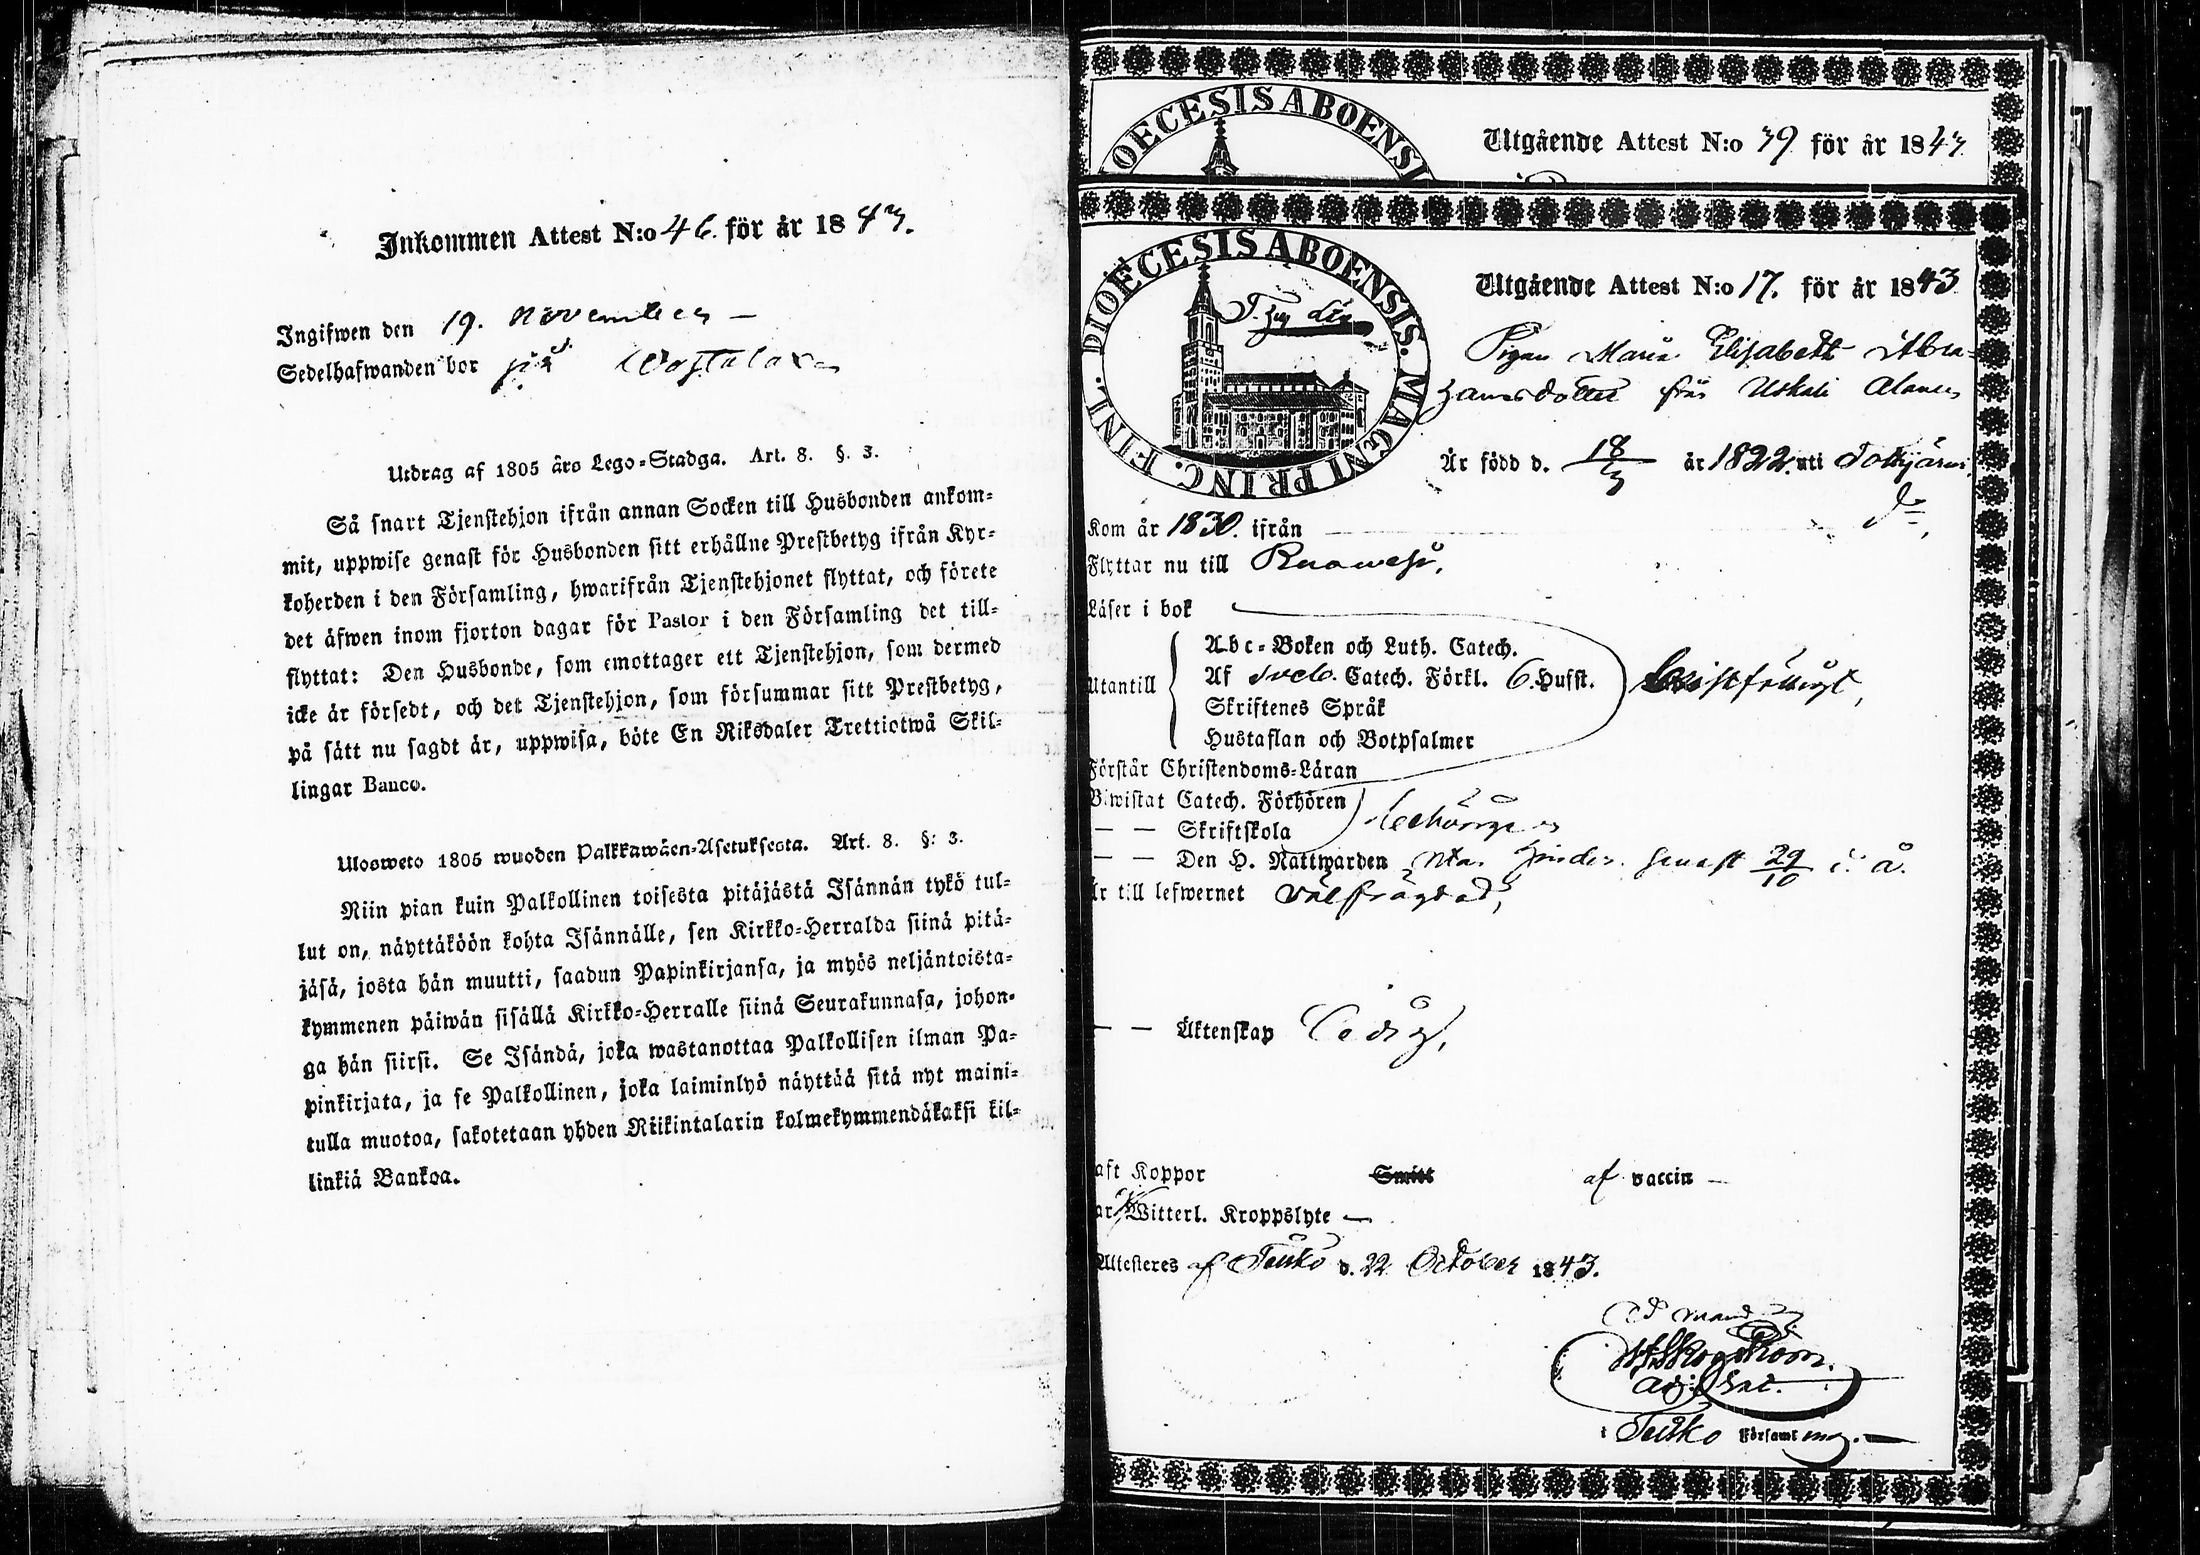 Inkommen Attest N:o 46. för år 1843.
Ingifwen den 19. November –
Sedelhafwanden bor på
Utdrag af 1805 års Lego-Stadga. Art. 8. §. 3.
Så snart Tjenstehjon ifrån annan Socken till Husbonden ankom-
mit, uppwise genast för Husbonden sitt erhållne Prestbetyg ifrån Kyr-
koherden i den Församling, hwarifrån Tjenstehjonet flyttat, och förete
det äfwen inom fjorton dagar för Pastor i den Församling det till-
flyttat: Den Husbonde, som emottager ett Tjenstehjon, som dermed
icke är försedt, och det Tjenstehjon, som försummar sitt Prestbetyg,
på sätt nu sagdt är, uppwisa, böte En Riksdaler Trettiotwå Skil-
lingar Banco.
Ulosweto 1805 wuoden Palkkawäen-Asetuksesta. Art. 8. §: 3.
Niin pian kuin Palkollinen toisesta pitäjästä Isännän tykö tul-
lut on, näyttäköön kohta Isännälle, sen Kirkko-Herralda siinä pitä-
jäsä, josta hän muutti, saadun Papinkirjansa, ja myös neljäntoista-
kymmenen päiwän sisällä Kirkko-Herralle siinä Seurakunnasa, johon-
ga hän siirsi. Se Isändä, joka wastanottaa Palkollisen ilman Pa-
pinkirjata, ja se Palkollinen, joka laiminlyö näyttää sitä nyt maini-
tulla muotoa, sakotetaan yhden Riikintalarin kolmekymmendäkaksi kil-
linkiä Bankoa.
DIOECESIS ABOENSIS
Utgående Attest N:o 39 för år 1843
DIOECESIS ABOENSIS. MAGNI PRINC. FINL.
Utgående Attest N:o 17. för år 1843
Pigan Maria Elisabeth Abra-
hamsdotter från Uskali
Är född d. 18/3 år 1822. uti
Kom år 1830. ifrån
Flyttar nu till Ruowesi,
Läser i bok
Utantill
Abc-Boken och Luth. Catech.
Af Sveb. Catech. Förkl. 6. Husst.
Skriftenes Språk
Hustaflan och Botpsalmer
Förstår Christendoms-Läran
Biwistat Catech. Förhören
— — Skriftskola
— — Den H. Nattwarden utan hinder. senast 29/10 i. å.
Är till lefwernet välfrägdad,
— — Äktenskap Ledig,
aft Koppor Smitt af vaccin –
ar Witterl. Kroppslyte —
Attesteres af Teisko d. 22 October 1843.
Adj: Sac.
i Teisko Församling. —